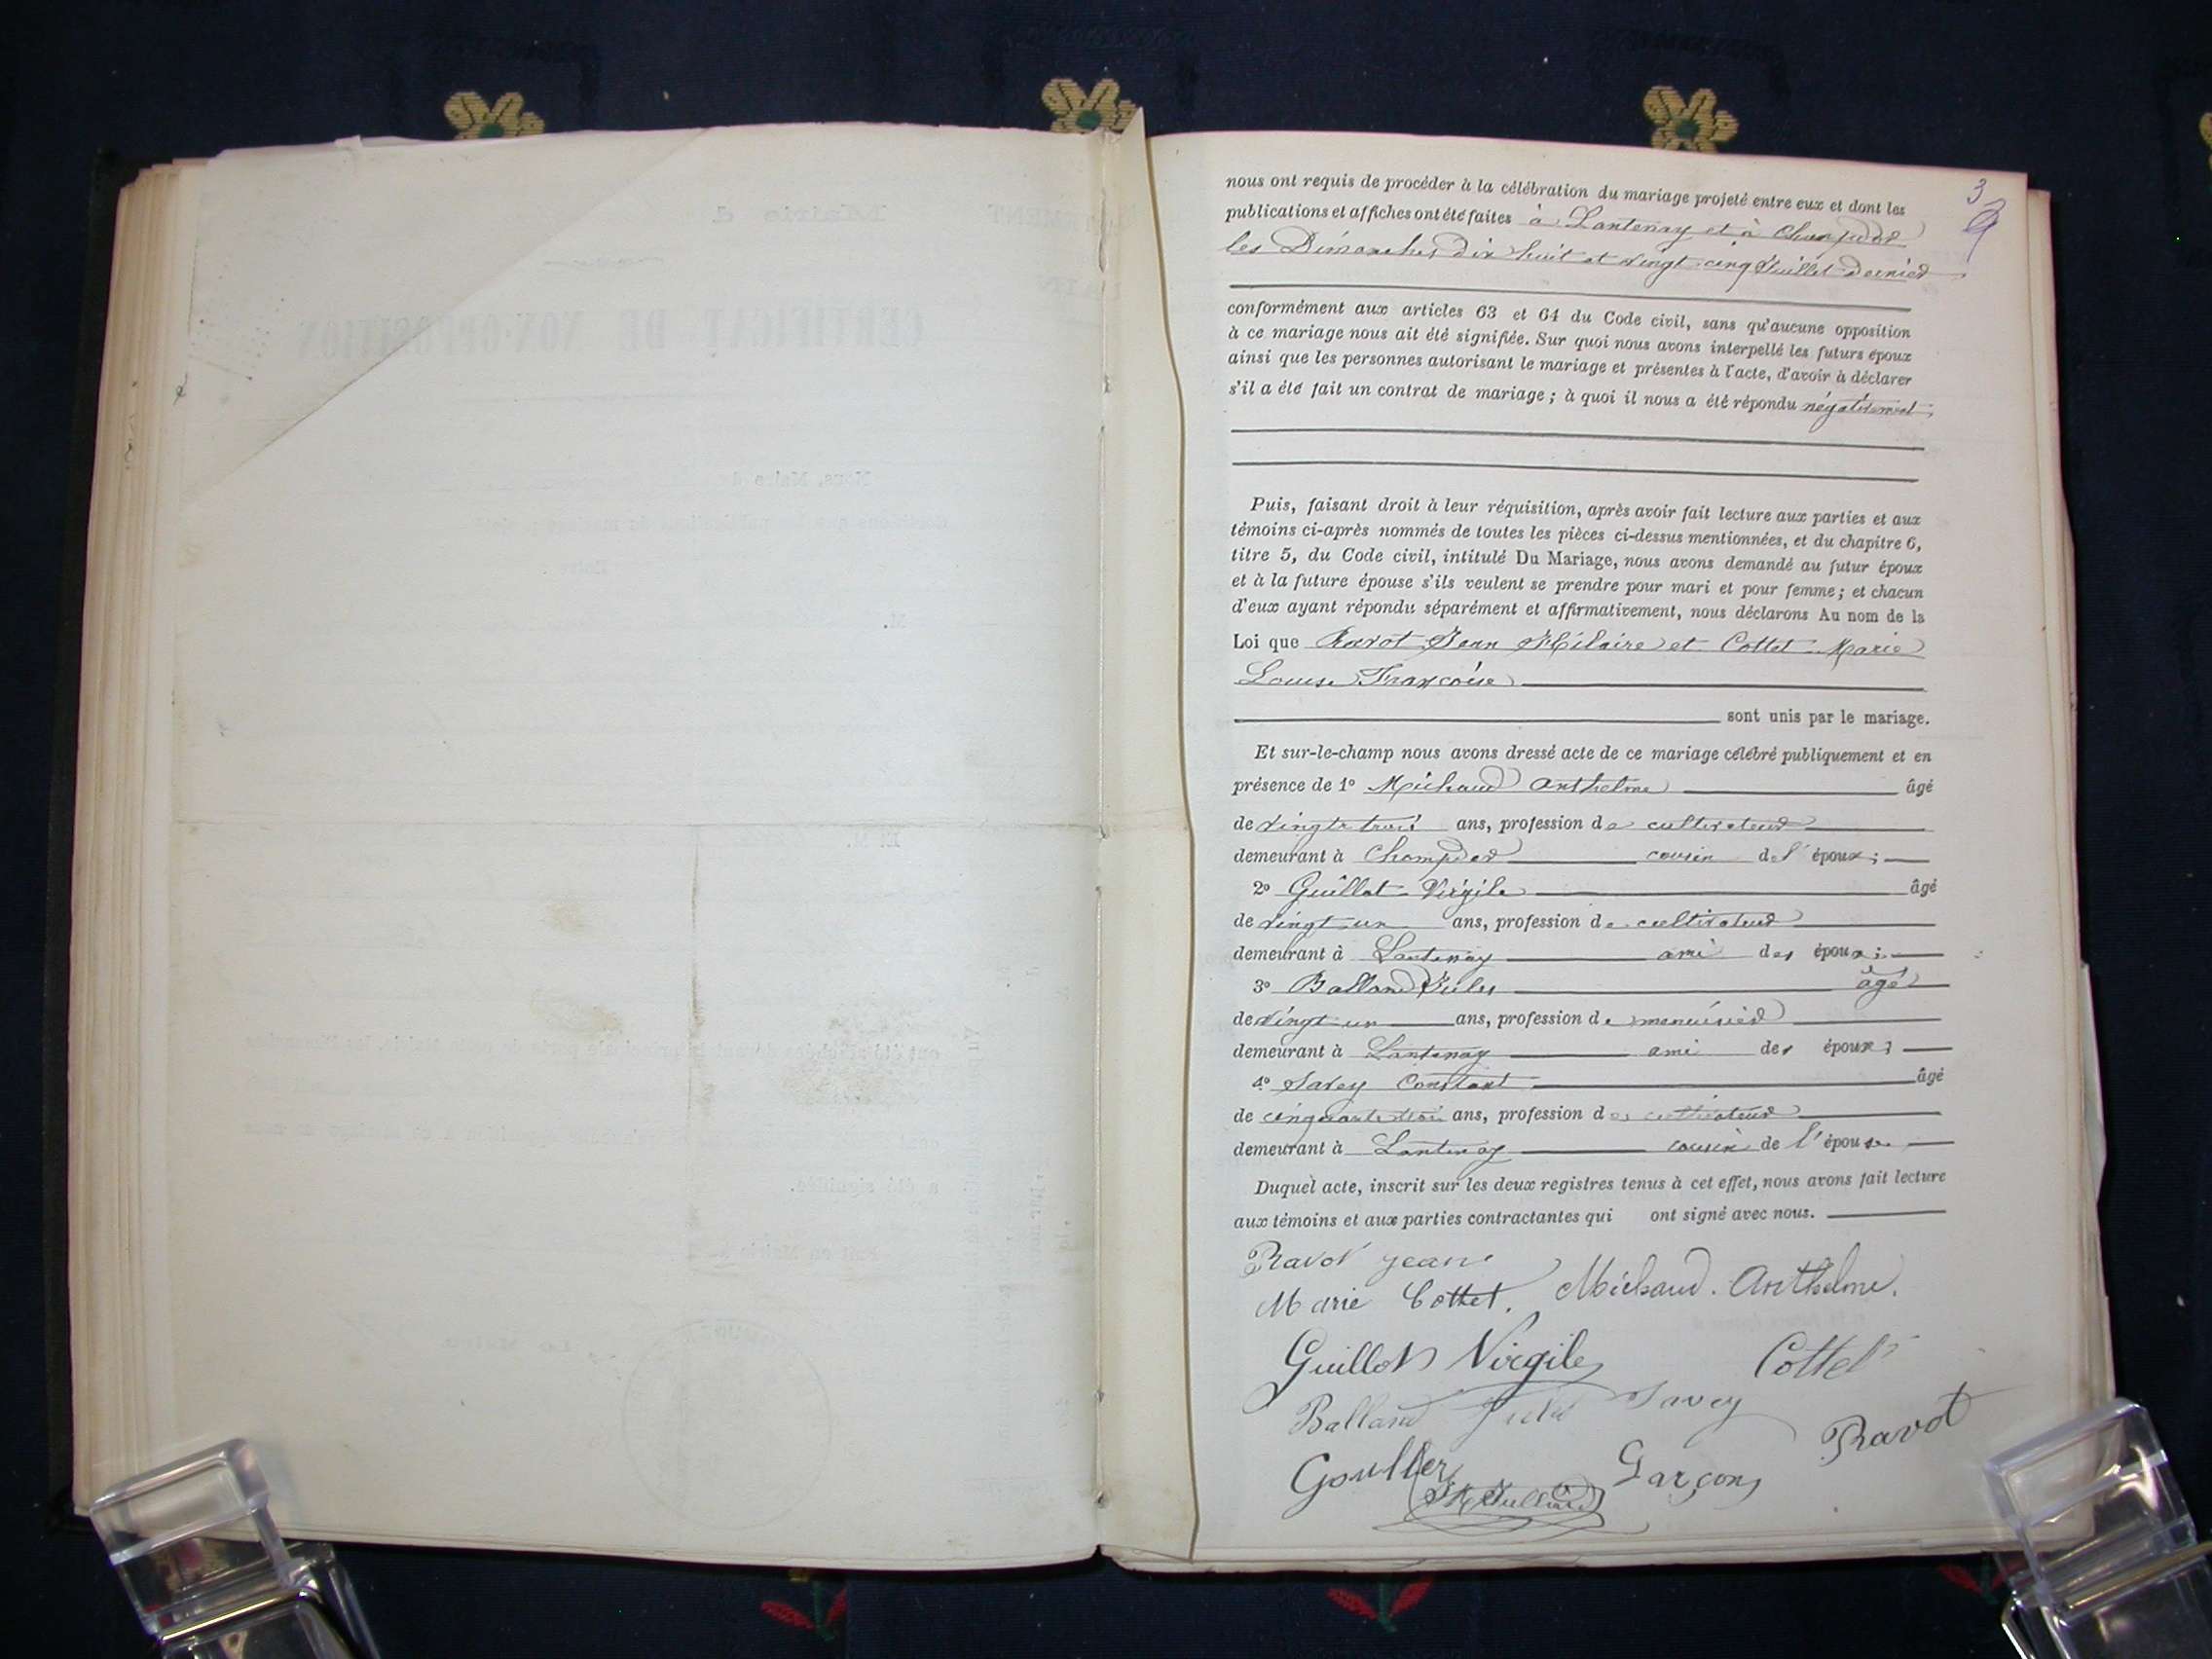 3
nous ont requis de procéder à la célébration du mariage projeté entre eux et dont les
publications et affiches ont été faites à Lantenay et à Champdor
les Dimanches dix huit et vingt cinq Juillet dernier
conformément aux articles 63 et 64 du Code civil, sans qu'aucune opposition
à ce mariage nous ait été signifiée. Sur quoi nous avons interpellé les futurs époux
ainsi que les personnes autorisant le mariage et présentes à l'acte, d'avoir à déclarer
s'il a été fait un contrat de mariage ; à quoi il nous a été répondu négativement,
Puis, faisant droit à leur réquisition, après avoir fait lecture aux parties et aux
témoins ci-après nommés de toutes les pièces ci-dessus mentionnées, et du chapitre 6,
titre 5, du Code civil, intitulé Du Mariage, nous avons demandé au futur époux
et à la future épouse s'ils veulent se prendre pour mari et pour femme ; et chacun
d'eux ayant répondu séparément et affirmativement, nous déclarons Au nom de la
Loi que Ravot Jean Hilaire et Cottet Marie
Louise Françoise
sont unis par le mariage.
Et sur-le-champ nous avons dressé acte de ce mariage célébré publiquement et en
présence de 1° Michaud Anthelme âgé
de vingt trois ans, profession de cultivateur
demeurant à Champdor cousin de l'époux ;
2° Guillot Virgile âgé
de vingt un ans, profession de cultivateur
demeurant à Lantenay ami des époux ;
3° Balland Jules âgé
de vingt un ans, profession de menuisier
demeurant à Lantenay ami des époux ;
4° Savey Constant âgé
de cinquante trois ans, profession de cultivateur
demeurant à Lantenay cousin de l'épouse.
Duquel acte, inscrit sur les deux registres tenus à cet effet, nous avons fait lecture
aux témoins et aux parties contractantes qui ont signé avec nous.
Ravot jean
Marie Cottet. Michaud. Anthelme.
Guillot Virgile Cottet
Balland Jules Savey
Ravot
Goullier Garçon
CERTIFICAT DE NON-OPPOSITION